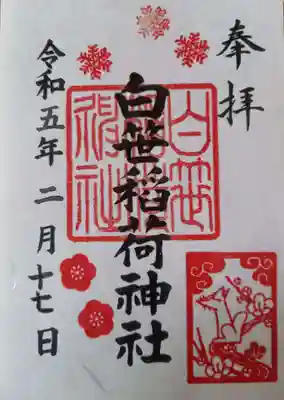 奉拝
白笹稲荷神社
令和五年 二月 十七日
白笹
稲荷
神社